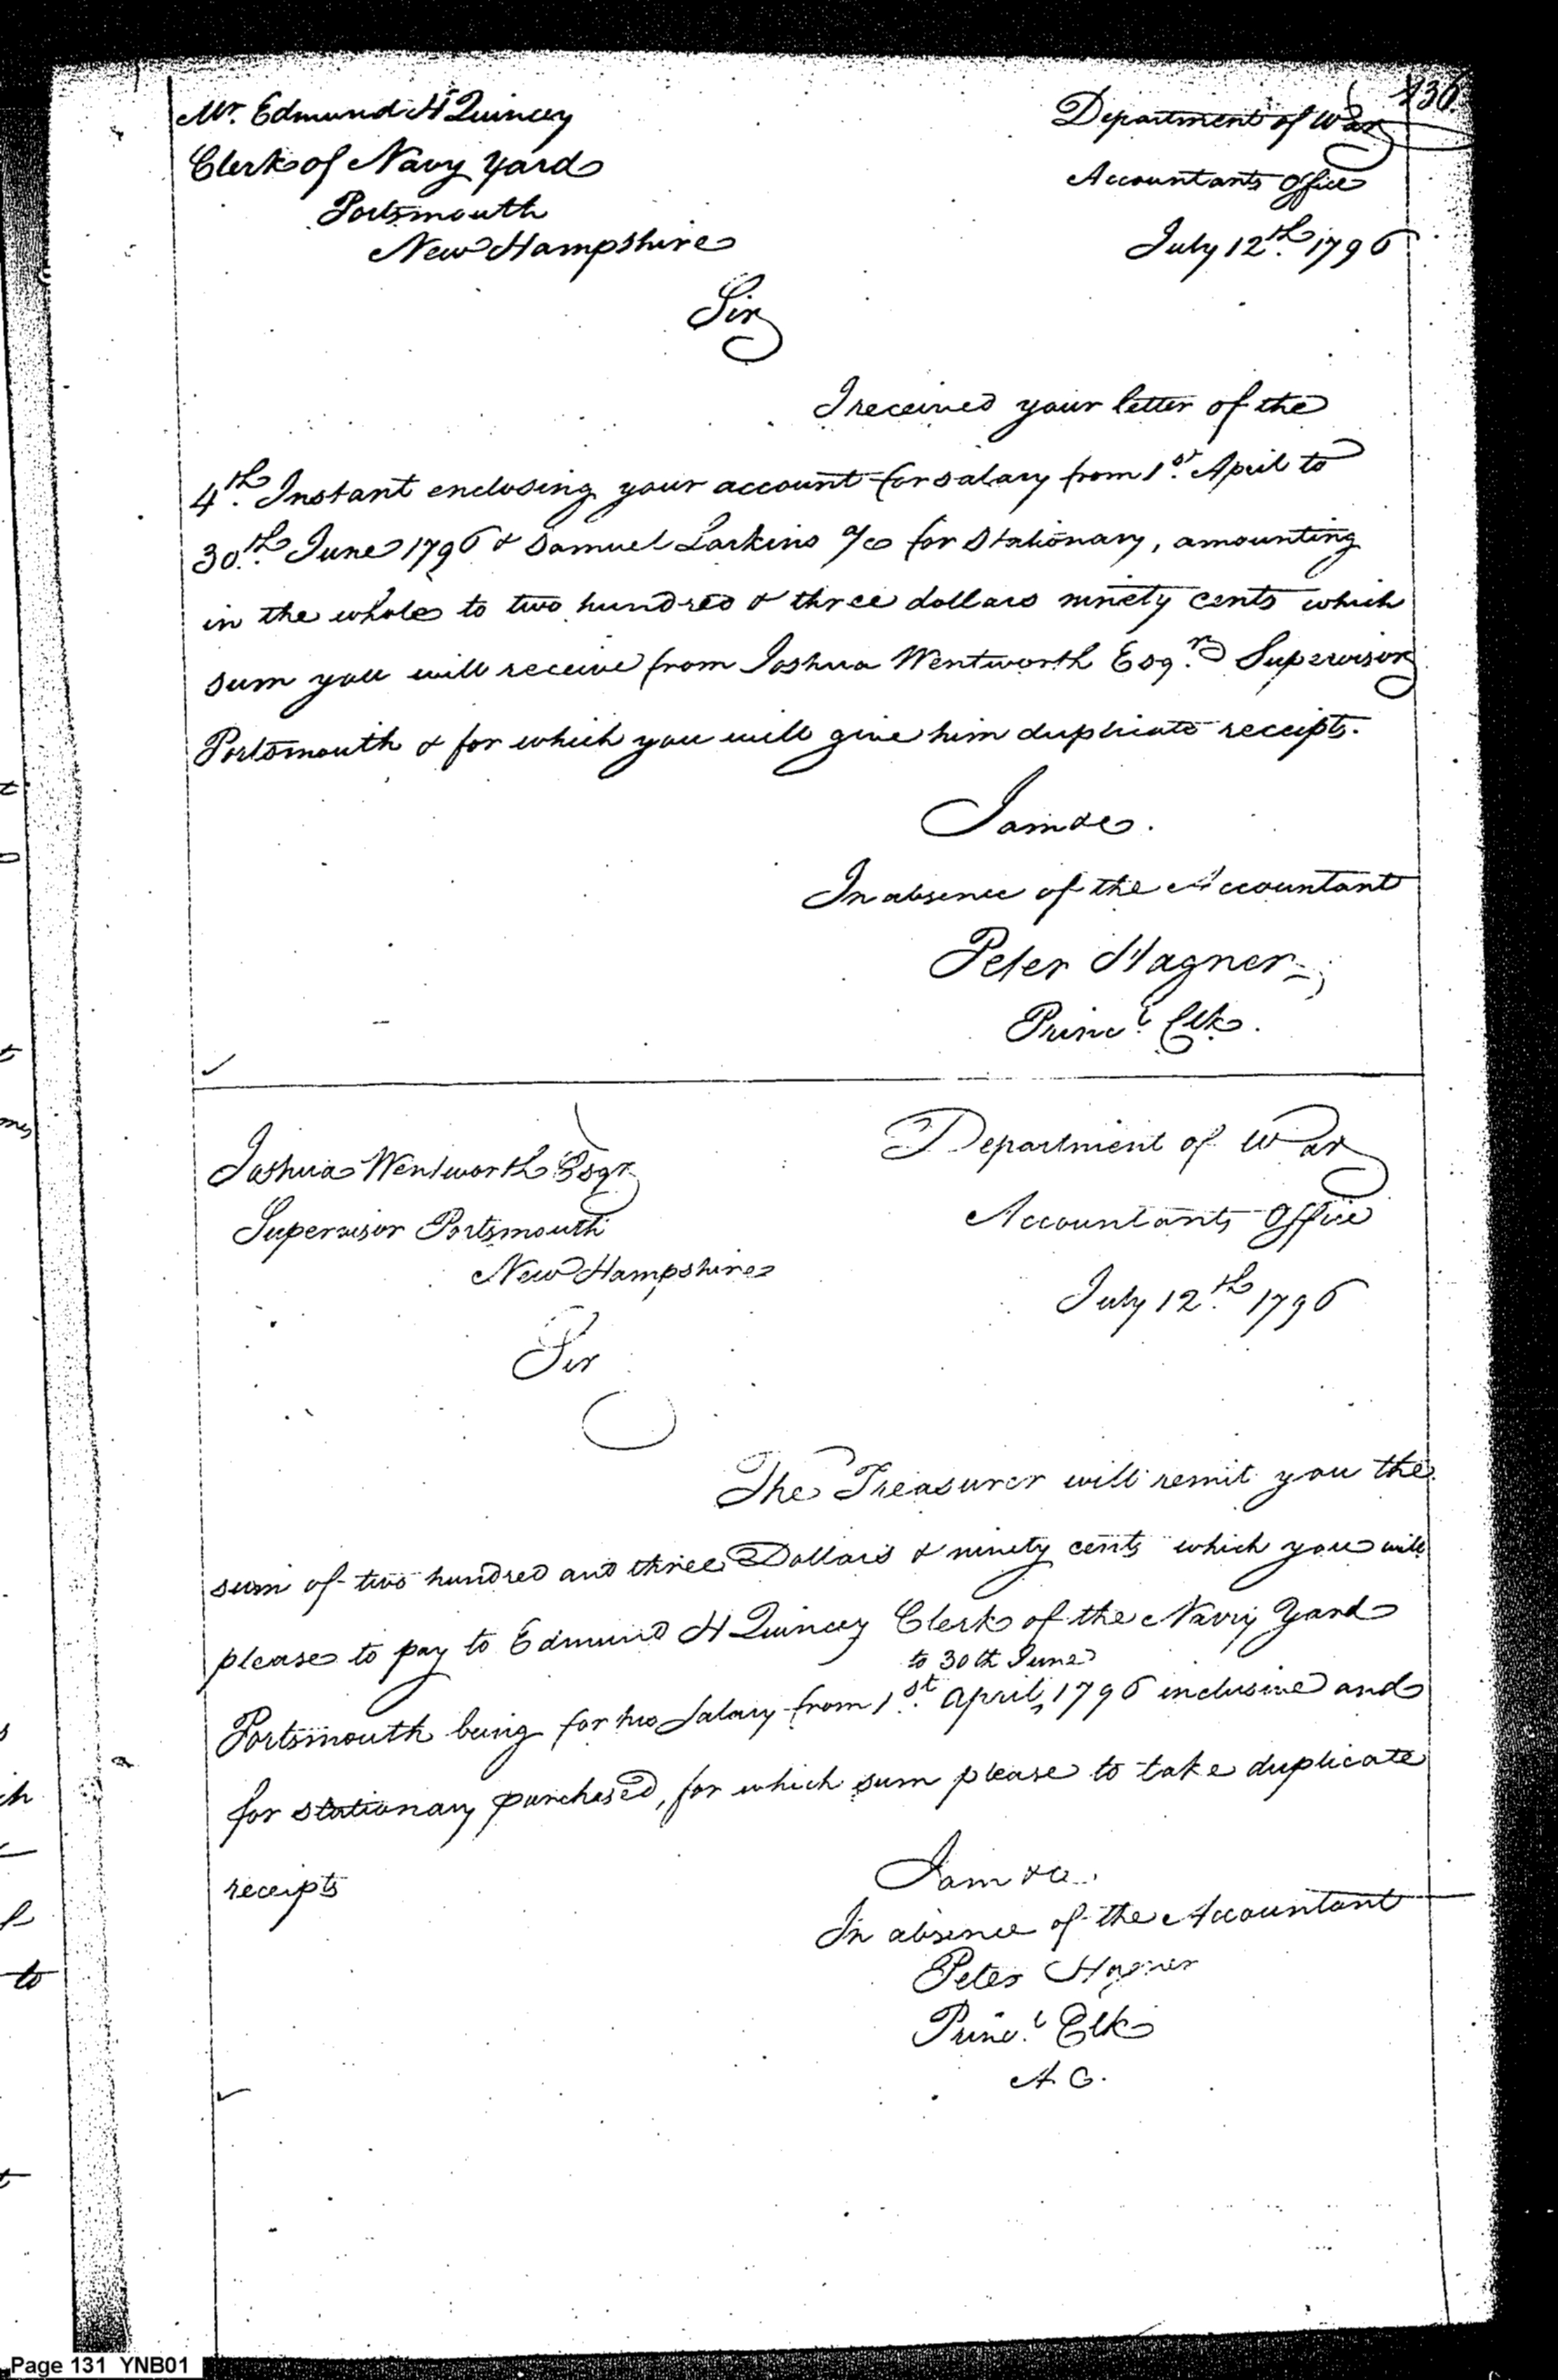 136.
Mr. Edmund H Quincey
Clerk of Navy Yard
Portsmouth
New Hampshire
Department of War
Accountants Office
July 12th. 1796
Sir
I received your letter of the
4th. Instant enclosing your account for salary from 1st. April to
30th. June 1796 & Samuel Larkins a/c for Stationary, amounting
in the whole to two hundred & three dollars ninety cents which
sum you will receive from Joshua Wentworth Esqr. Supervisor
Portsmouth & for which you will give him duplicate receipts.
I am &c.
In absence of the Accountant
Peter Hagner
Princl. Clk.
Joshua Wentworth Esqr
Supervisor Portsmouth
New Hampshire
Department of War
Accountants Office
July 12th. 1796
Sir
The Treasurer will remit you the
sum of two hundred and three Dollars & ninety cents which you will
please to pay to Edmund H Quincey Clerk of the Navy Yard
to 30th June
Portsmouth being for his Salary from 1st. April, 1796 inclusive and
for stationary purchased, for which sum please to take duplicate
receipts
I am &c.
In absence of the Accountant
Peter Hagner
Princl. Clk
A. O.
to
Page 131 YNB01